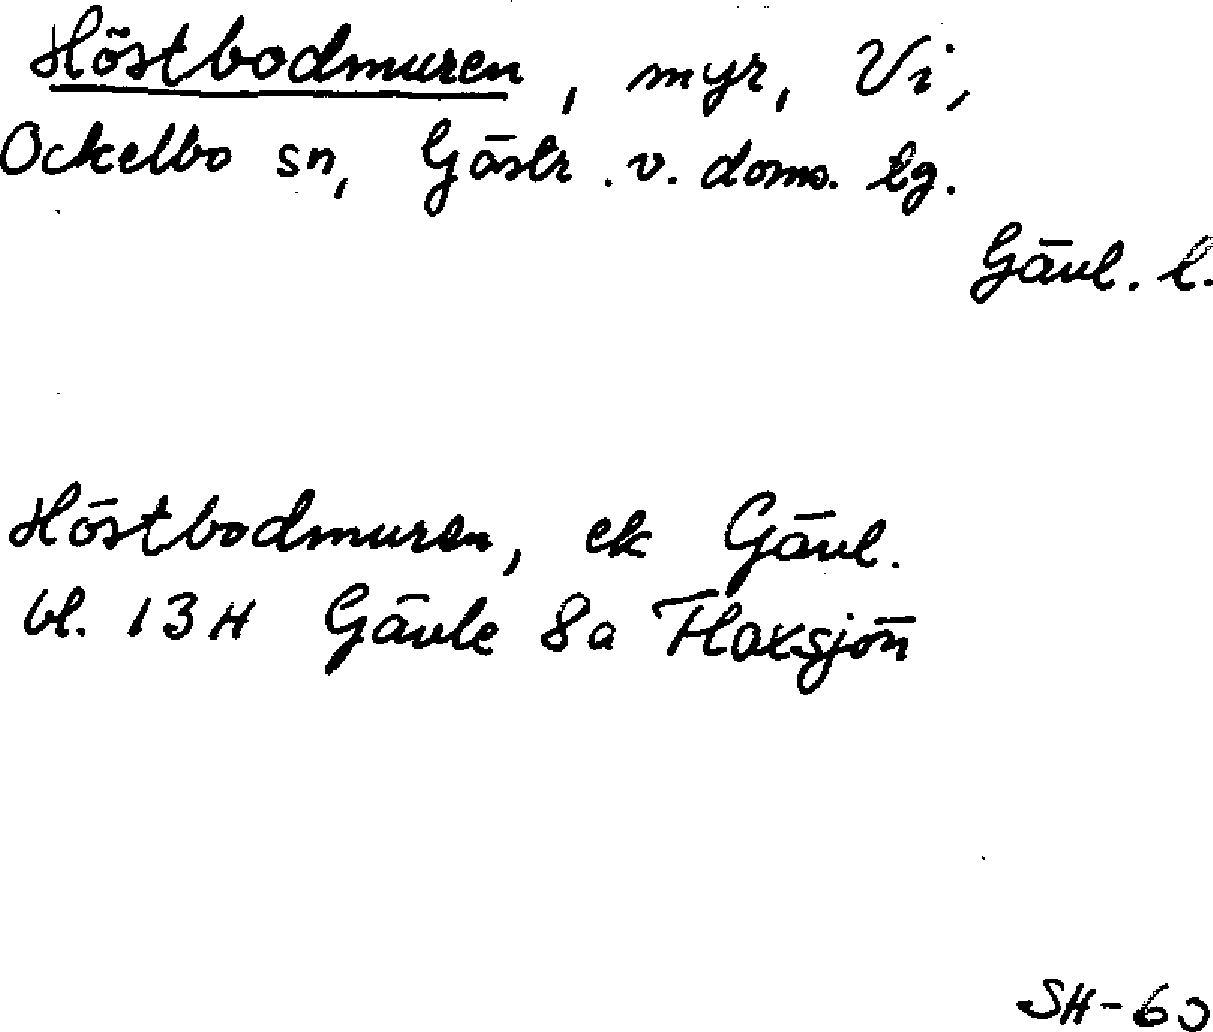 Höstbodmuren, myr, Vi,
Ockelbo sn, Gästr. v. doms. tg.
Gävl. l.
Höstbodmuren, ek Gävl.
bl. 13H Gävle 8a Flaxsjön
SH-60